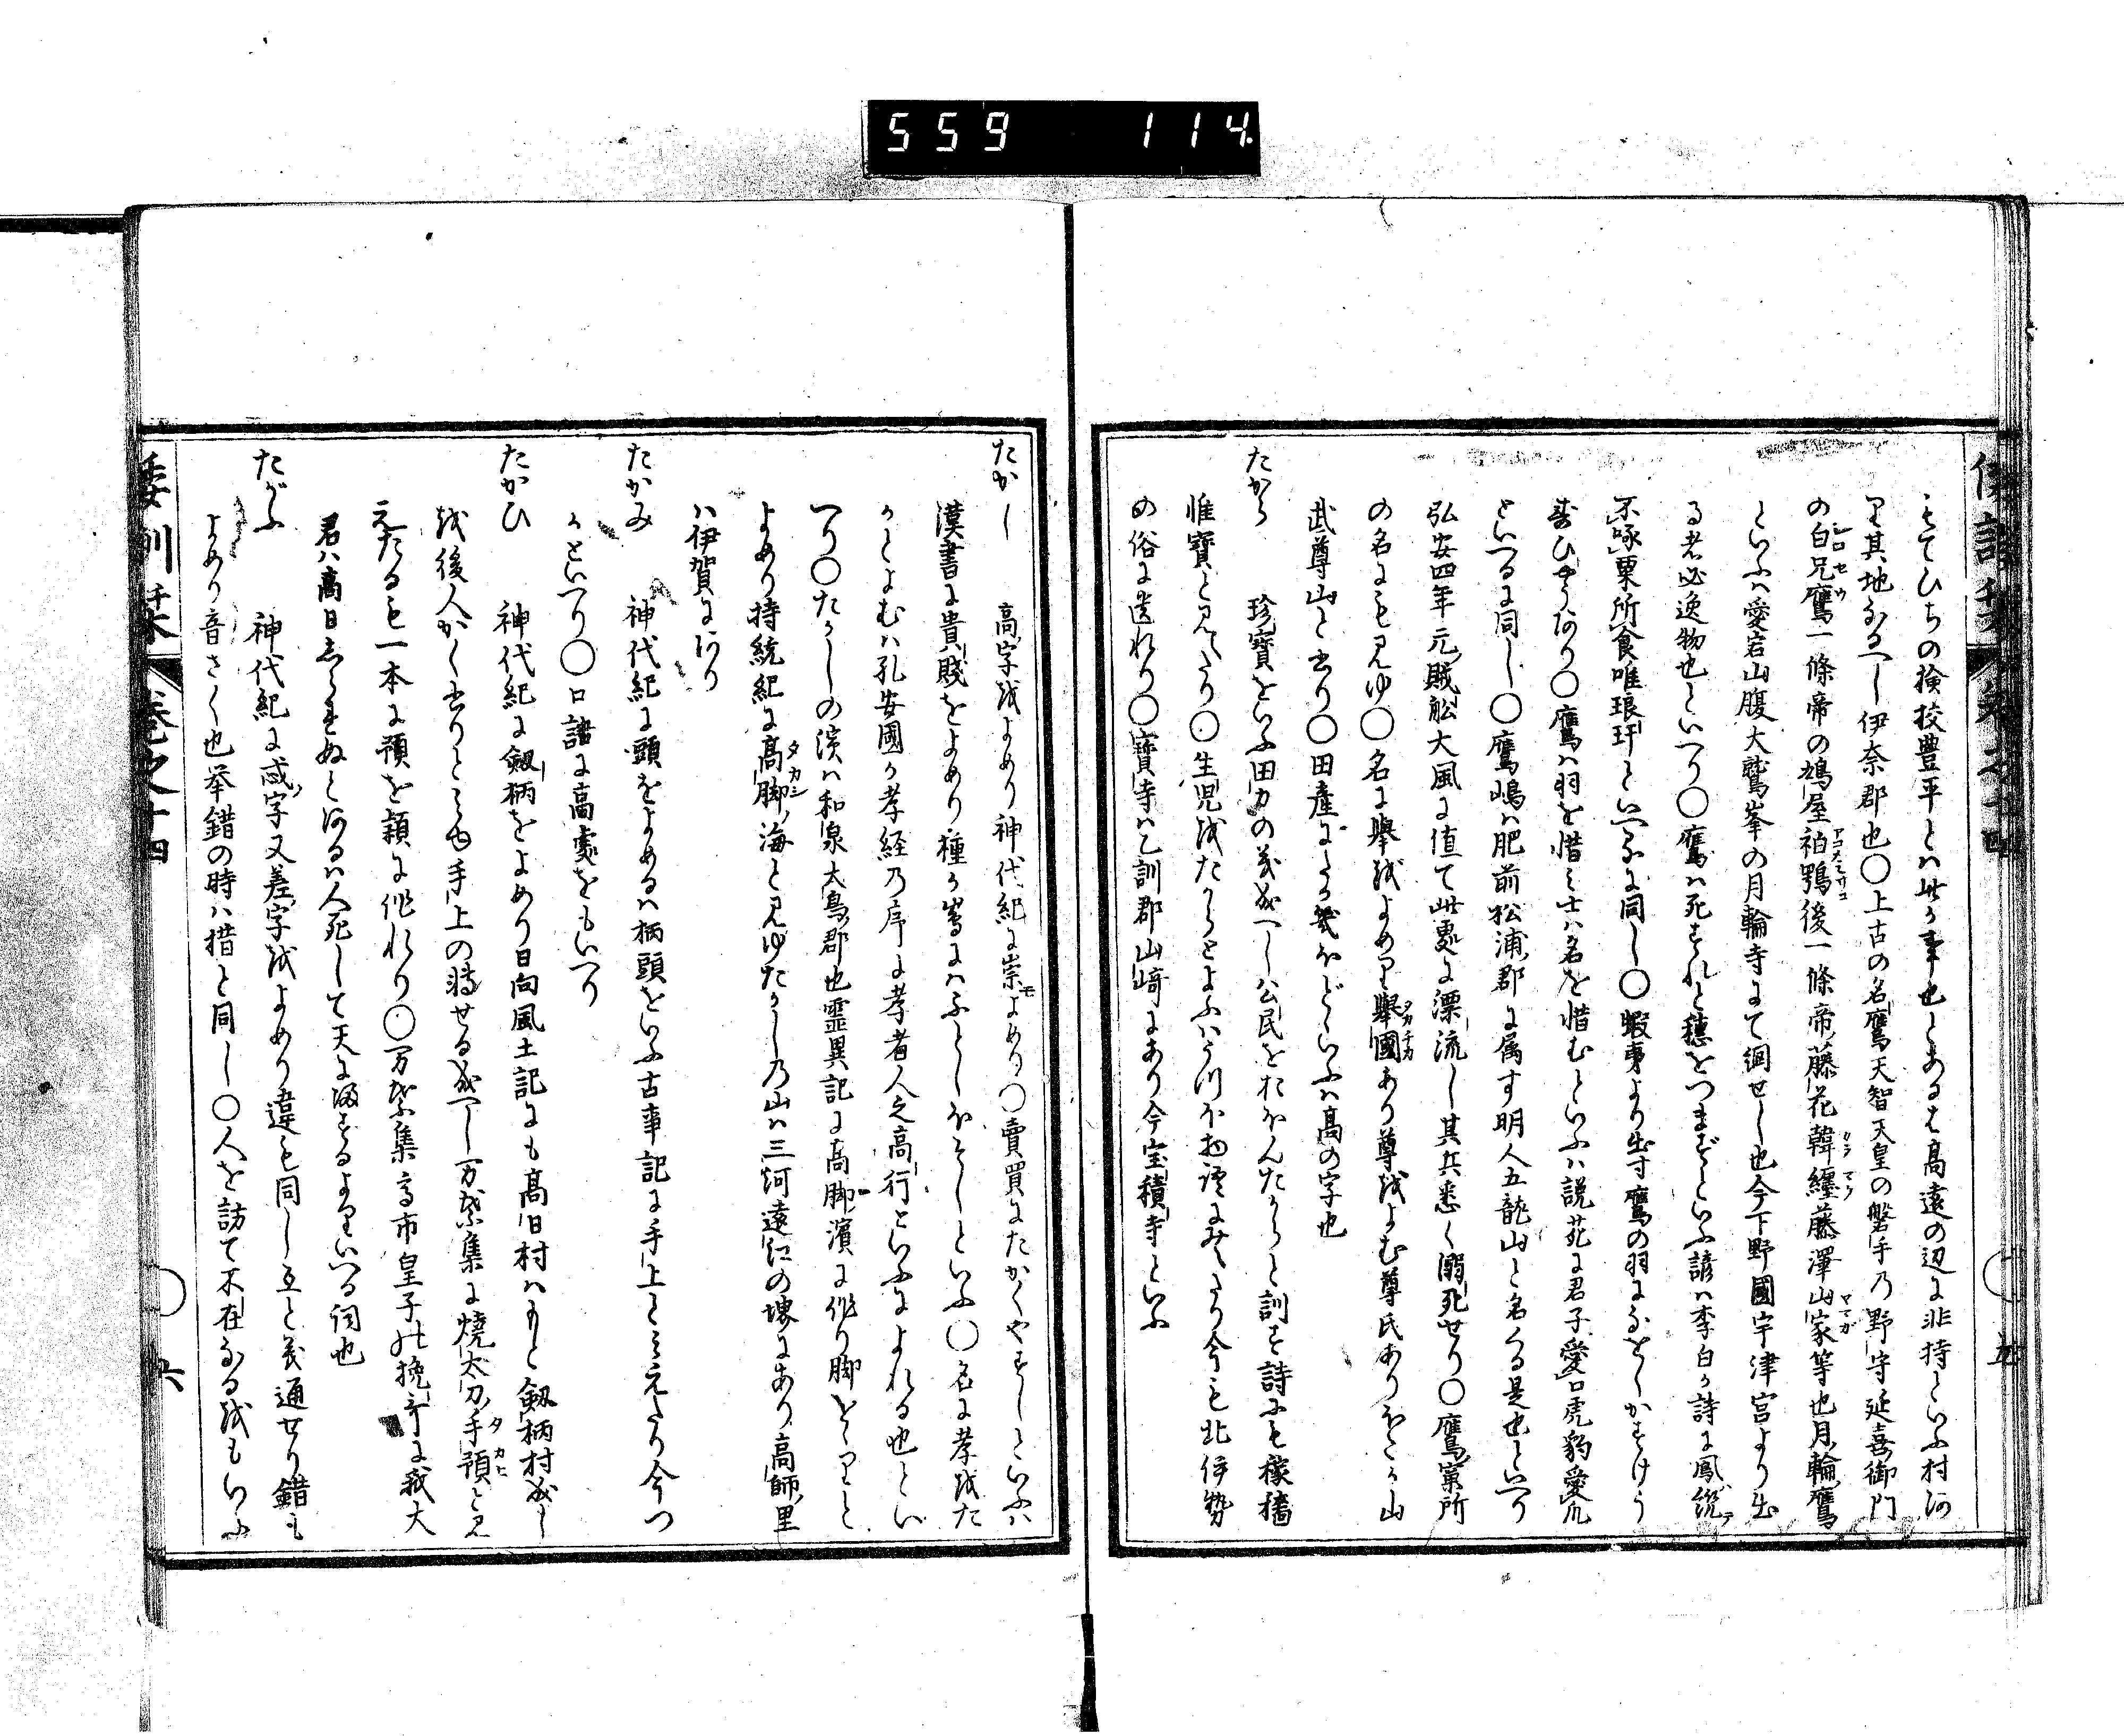 559 114
もてひちの検校豊平とハ此か事也とある也高遠の辺に非持といふ村あ
り其地なるへし伊奈郡也〇上古の名鷹天智天皇の磐手乃野守延喜御門
の白兄鷹一條帝の鳩屋袙鶚後一條帝藤花韓纏藤澤山家等也月輪鷹
といふハ愛宕山腹大鷲峯の月輪寺にて徊せし也今下野國宇津宮より出
る者必逸物也といへり〇鷹ハ死すれと穂をつまずといふ諺ハ李白か詩に鳳飢
不啄粟所食唯琅玕といへるに同し〇蝦夷より出す鷹の羽に
あり〇鷹ハ羽を惜ミ士ハ名を惜むといふハ説苑に君子愛口虎豹愛爪
といへるに同し〇鷹嶋ハ肥前松浦郡に属す明人五龍山と名くる是也といへり
弘安四年元賊舩大風に値て此処に漂流し其兵悉く溺死せり〇鷹窠所
の名にも見ゆ〇名に擧をよめり擧國あり尊をよむ尊氏ありほこか山
武尊山と書り〇田産
たから 珍寶をいふ田力の義成へし公民をおほんたからと訓す詩にも稼穡
惟寶と見えたり〇生児をたからとよふハうつほ物語にみえたり今も北伊勢
の俗に遺れり〇寶寺ハ乙訓郡山﨑にあり今宝積寺といふ
たかし 高字をよめり神代紀に崇もよめり〇賣買にたかくやすしといふハ
漢書に貴賤をよめり種か島にハふとしほそしといふ〇名に孝をた
かとよむハ孔安國か孝経乃序に孝者人之高行といふによれる也とい
へり〇たかしの濱ハ和泉大鳥郡也霊異記に高脚濱に作り脚をしと
よめり持統紀に高脚海と見ゆたかし乃山ハ三河遠江の堺にあり高師里
ハ伊賀にあり
たかみ 神代紀に頭をよめるハ柄頭をいふ古事記に手上とミえたり今つ
かといへり〇口語に高處をもいへり
たかひ 神代紀に劔柄をよめり日向風土記にも高日村ハもと劔柄村成し
を後人かく書りとミゆ手上の轉せる成へし万葉集に焼太刀手預と見
えたるも一本に預を穎に作れり〇万葉集高市皇子の挽哥に我大
君ハ高日しらしぬとあるハ人死して天に歸するよりいへる詞也
たがふ 神代紀に忒字又差字をよめり違も同し互と義通せり錯も
よめり音さく也挙錯の時ハ措と同し〇人を訪て不在なるをもいふ
倭訓栞 巻之十四 六